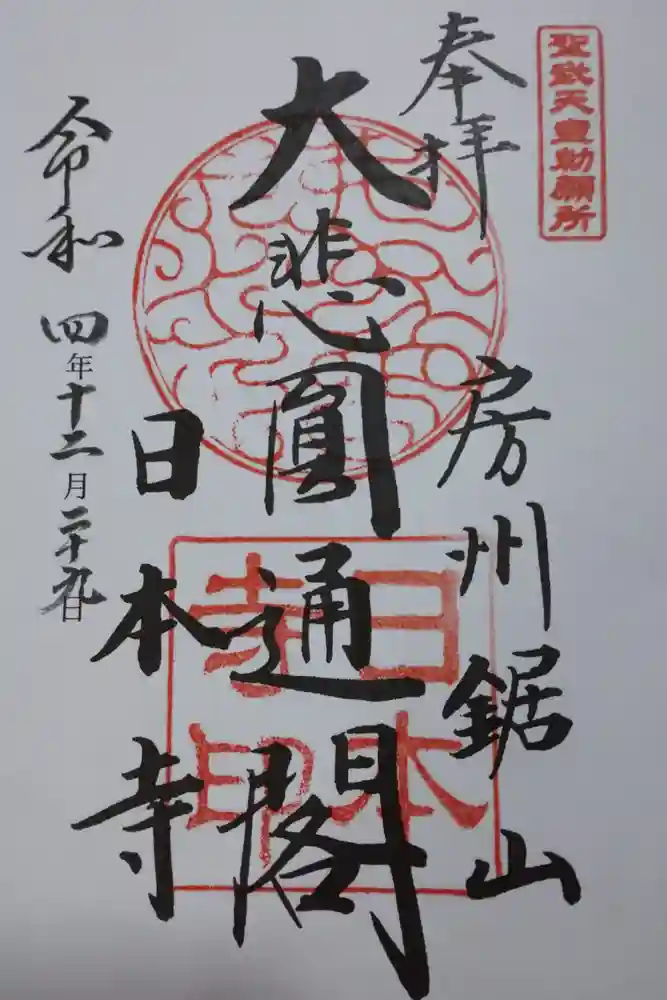 聖武天皇勅願所
奉拝
房州鋸山
大悲圓通閣
日本寺印
日本寺
令和四年十二月二十九日